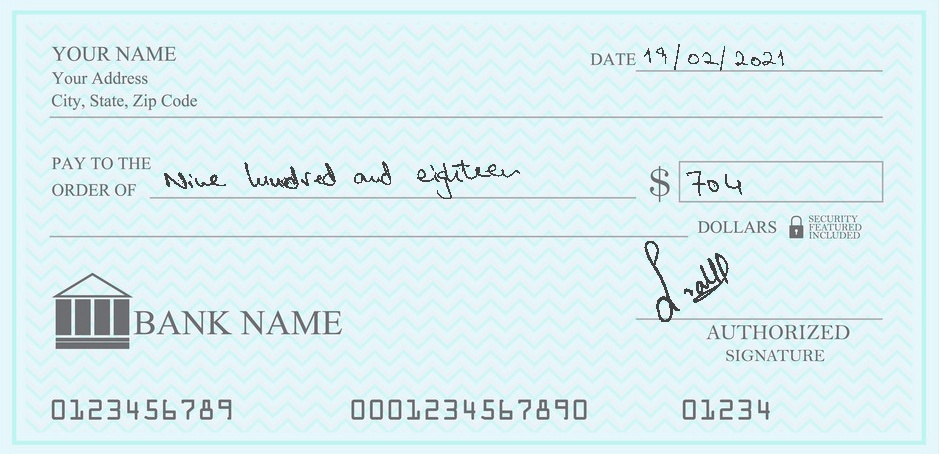 YOUR NAME
Your Address
City, State, Zip Code
DATE 19/02/2021
PAY TO THE
ORDER OF Nine hundred and eighteen $ 704
DOLLARS SECURITY
FEATURED
INCLUDED
BANK NAME
AUTHORIZED
SIGNATURE
0123456789 0001234567890 01234